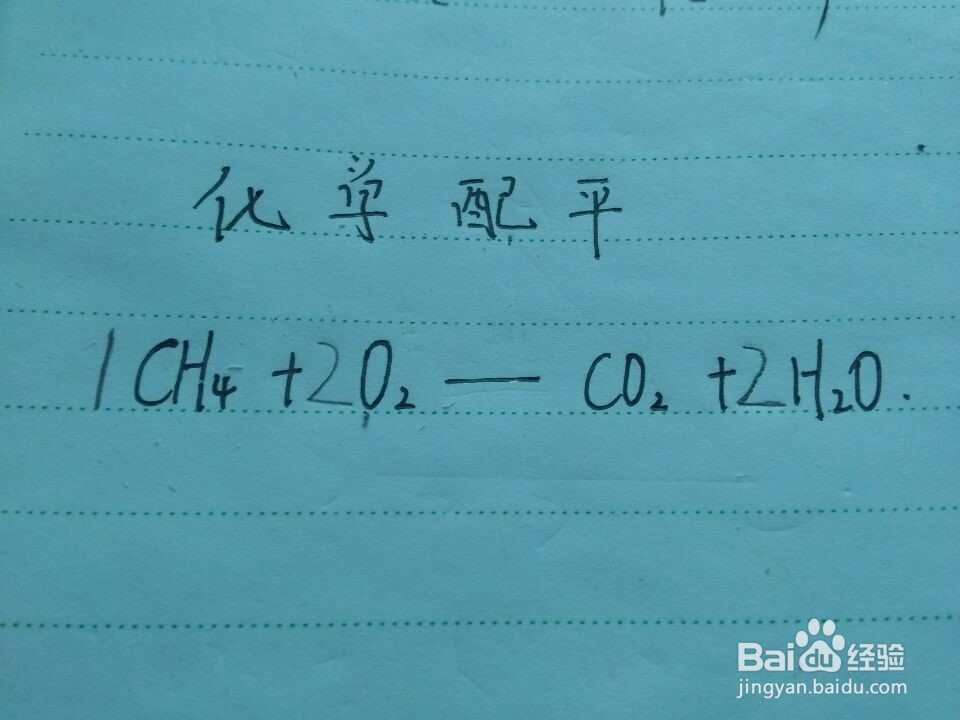 化学配平
1CH₄+2O₂—CO₂+2H₂O.
Baidu经验
jingyan.baidu.com